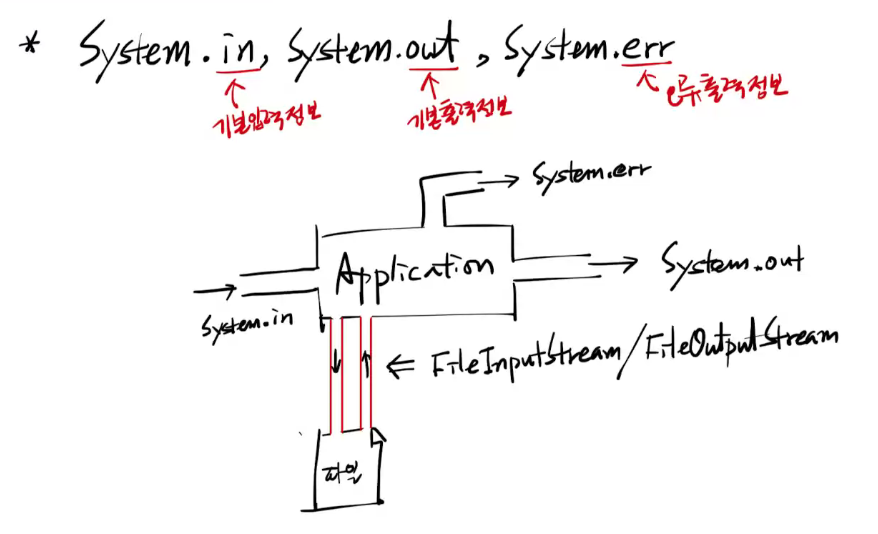 * System.in, System.out, System.err
기본입력정보
기본출력정보
오류출력정보
System.err
Application
System.out
System.in
⇐ FileInputStream/FileOutputStream
파일